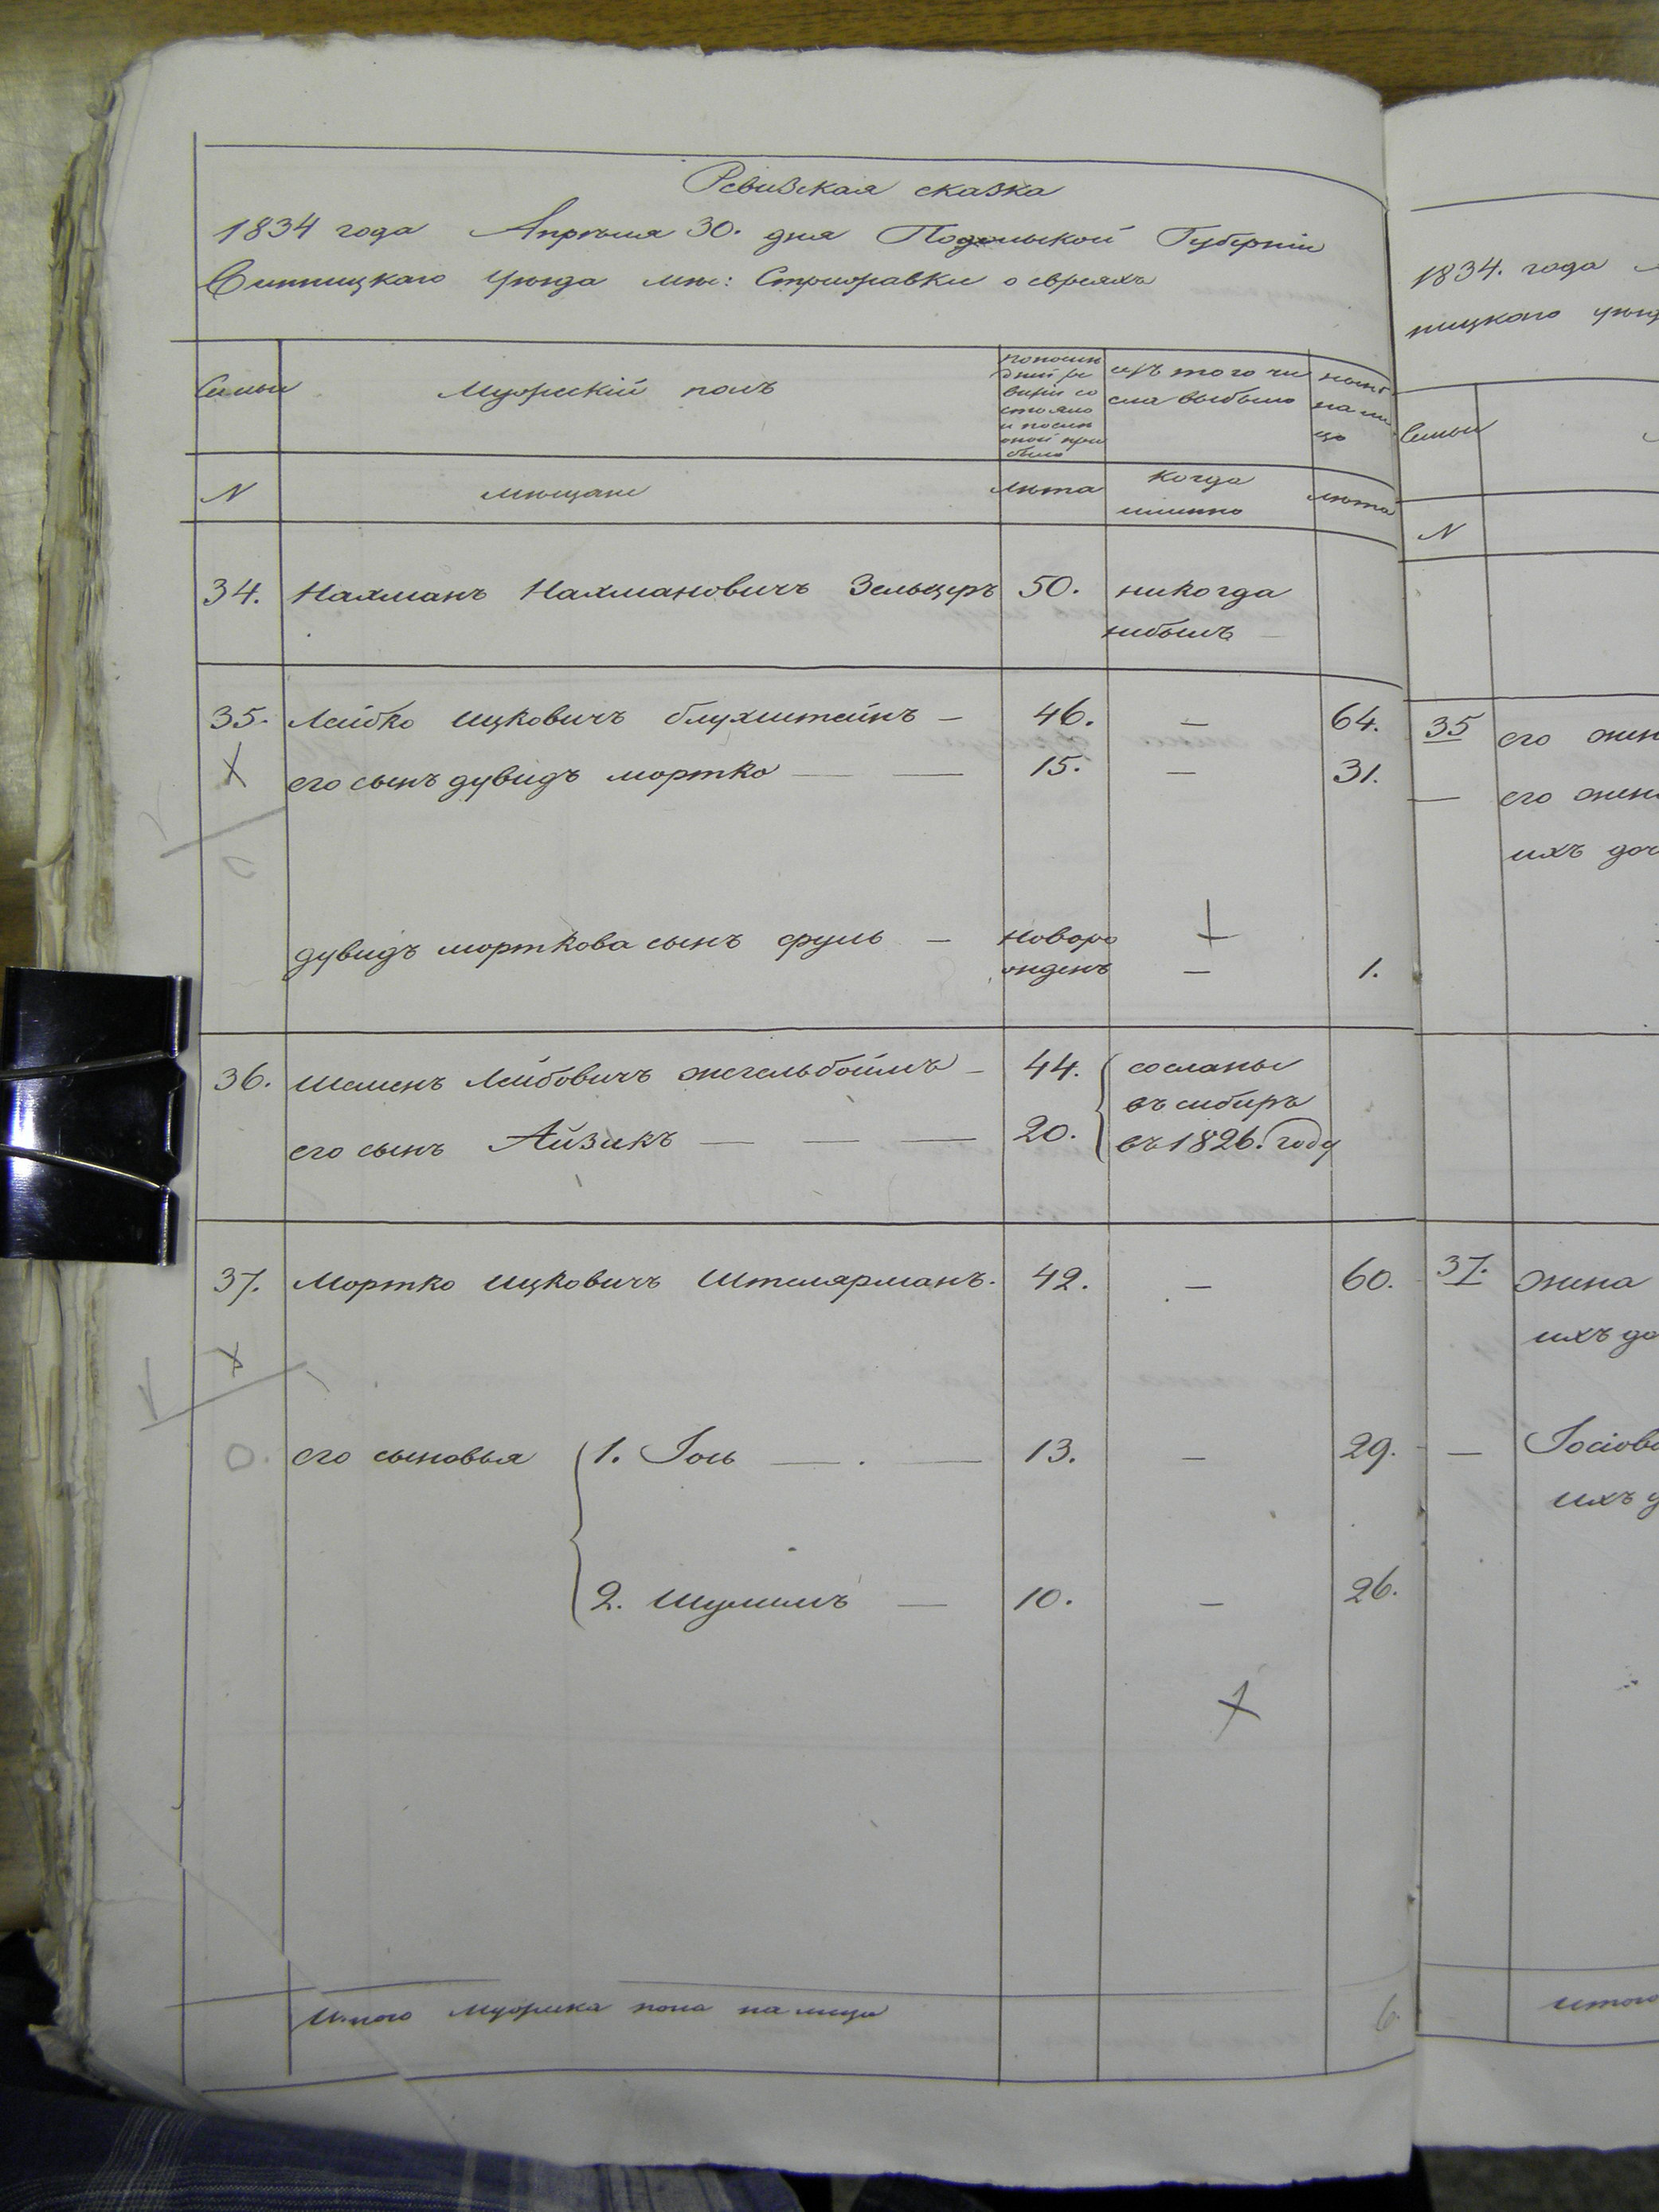 Ревизская сказка
1834 года Апреля 30. дня Подольской Губернии
Винницкаго уезда мес: Стрижавки о евреяхъ
Семьи
Мужеский полъ
попослед
дней ре
визии со
стояло
и после
оной при
было
изъ того чи
сла выбыло
ныне
на ли
цо
N
мещане
лета
когда
именно
лета
34. Нахманъ Нахмановичъ Зельцеръ 50. никогда
небылъ —
35. Лейбко Ицковичъ блухштейнъ — 46. — 64.
его сынъ дувидъ мортко — — 15. — 31.
дувидъ морткова сынъ сруль — новоро
жденъ — 1.
36. шеменъ Лейбовичъ жегельбоймъ — 44. сосланы
въ сибирь
его сынъ Айзикъ — — — 20. въ 1826. году
37. Мортко Ицковичъ Штелярманъ. 42. — 60.
его сыновья 1. Іось — . — 13. — 29.
2. Шулимъ — 10. — 26.
Итого мужеска пола на лицо 6.
1834. года
ницкаго уезд
Семьи
N
35 его жен
— его жен
ихъ доч
37. жена
ихъ до
— Іосіова
ихъ д
итого